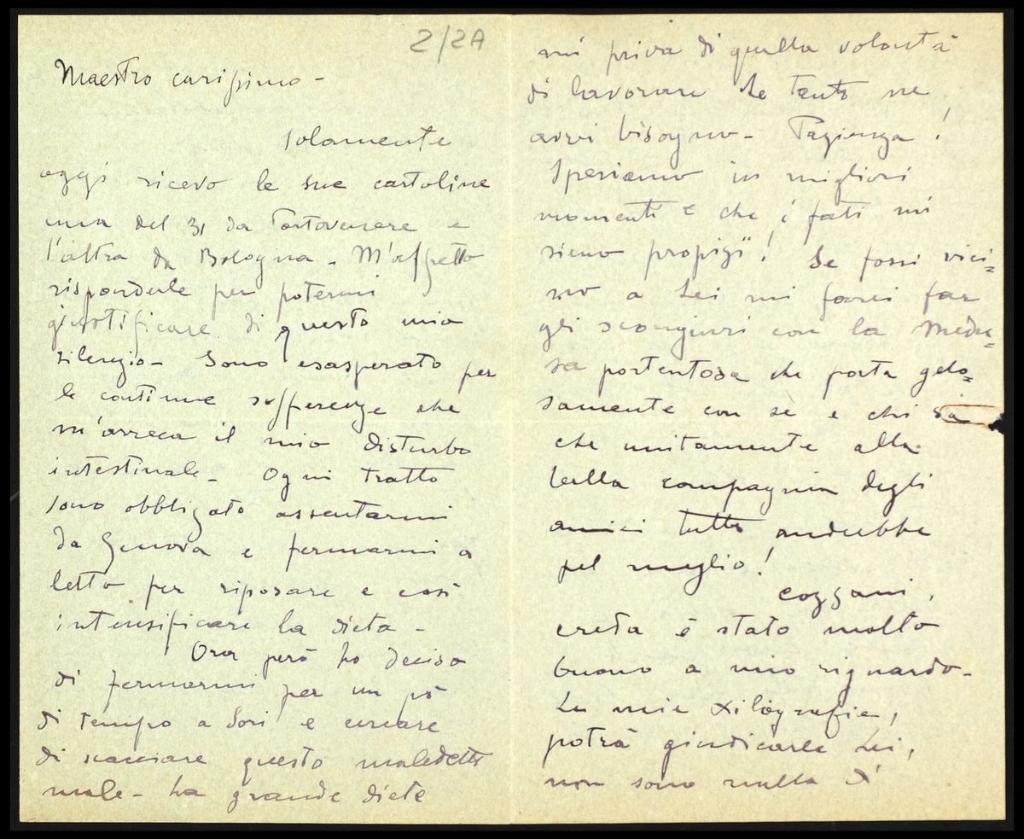 2/2A
Maestro carissimo -
solamente
oggi ricevo le sue cartoline
una del 31 da Portovenere e
l'altra da Bologna - M'affretto
risponderle per potermi
giustificare di questo mio
silenzio - Sono esasperato per
le continue sofferenze che
m'arreca il mio disturbo
intestinale - Ogni tratto
sono obbligato assentarmi
da Genova e fermarmi a
letto per riposare e così
intensificare la dieta -
Ora però ho deciso
di fermarmi per un pò
di tempo a Sori e cercare
di scacciare questo maledetto
male - La grande diete
mi priva di quella volontà
di lavorare che tanto ne
avrei bisogno - Pazienza!
Speriamo in migliori
momenti e che i fati mi
sieno propizî! Se fossi vici=
no a Lei mi farei far
gli scongiuri con la Medu=
sa portentosa che porta gelo=
samente con sè e chi sà
che unitamente alla
bella compagnia degli
amici tutto andrebbe
pel meglio!
Cozzani,
creda è stato molto
buono a mio riguardo -
Le mie xilografie,
potrà giudicarle Lei,
non sono nulla di